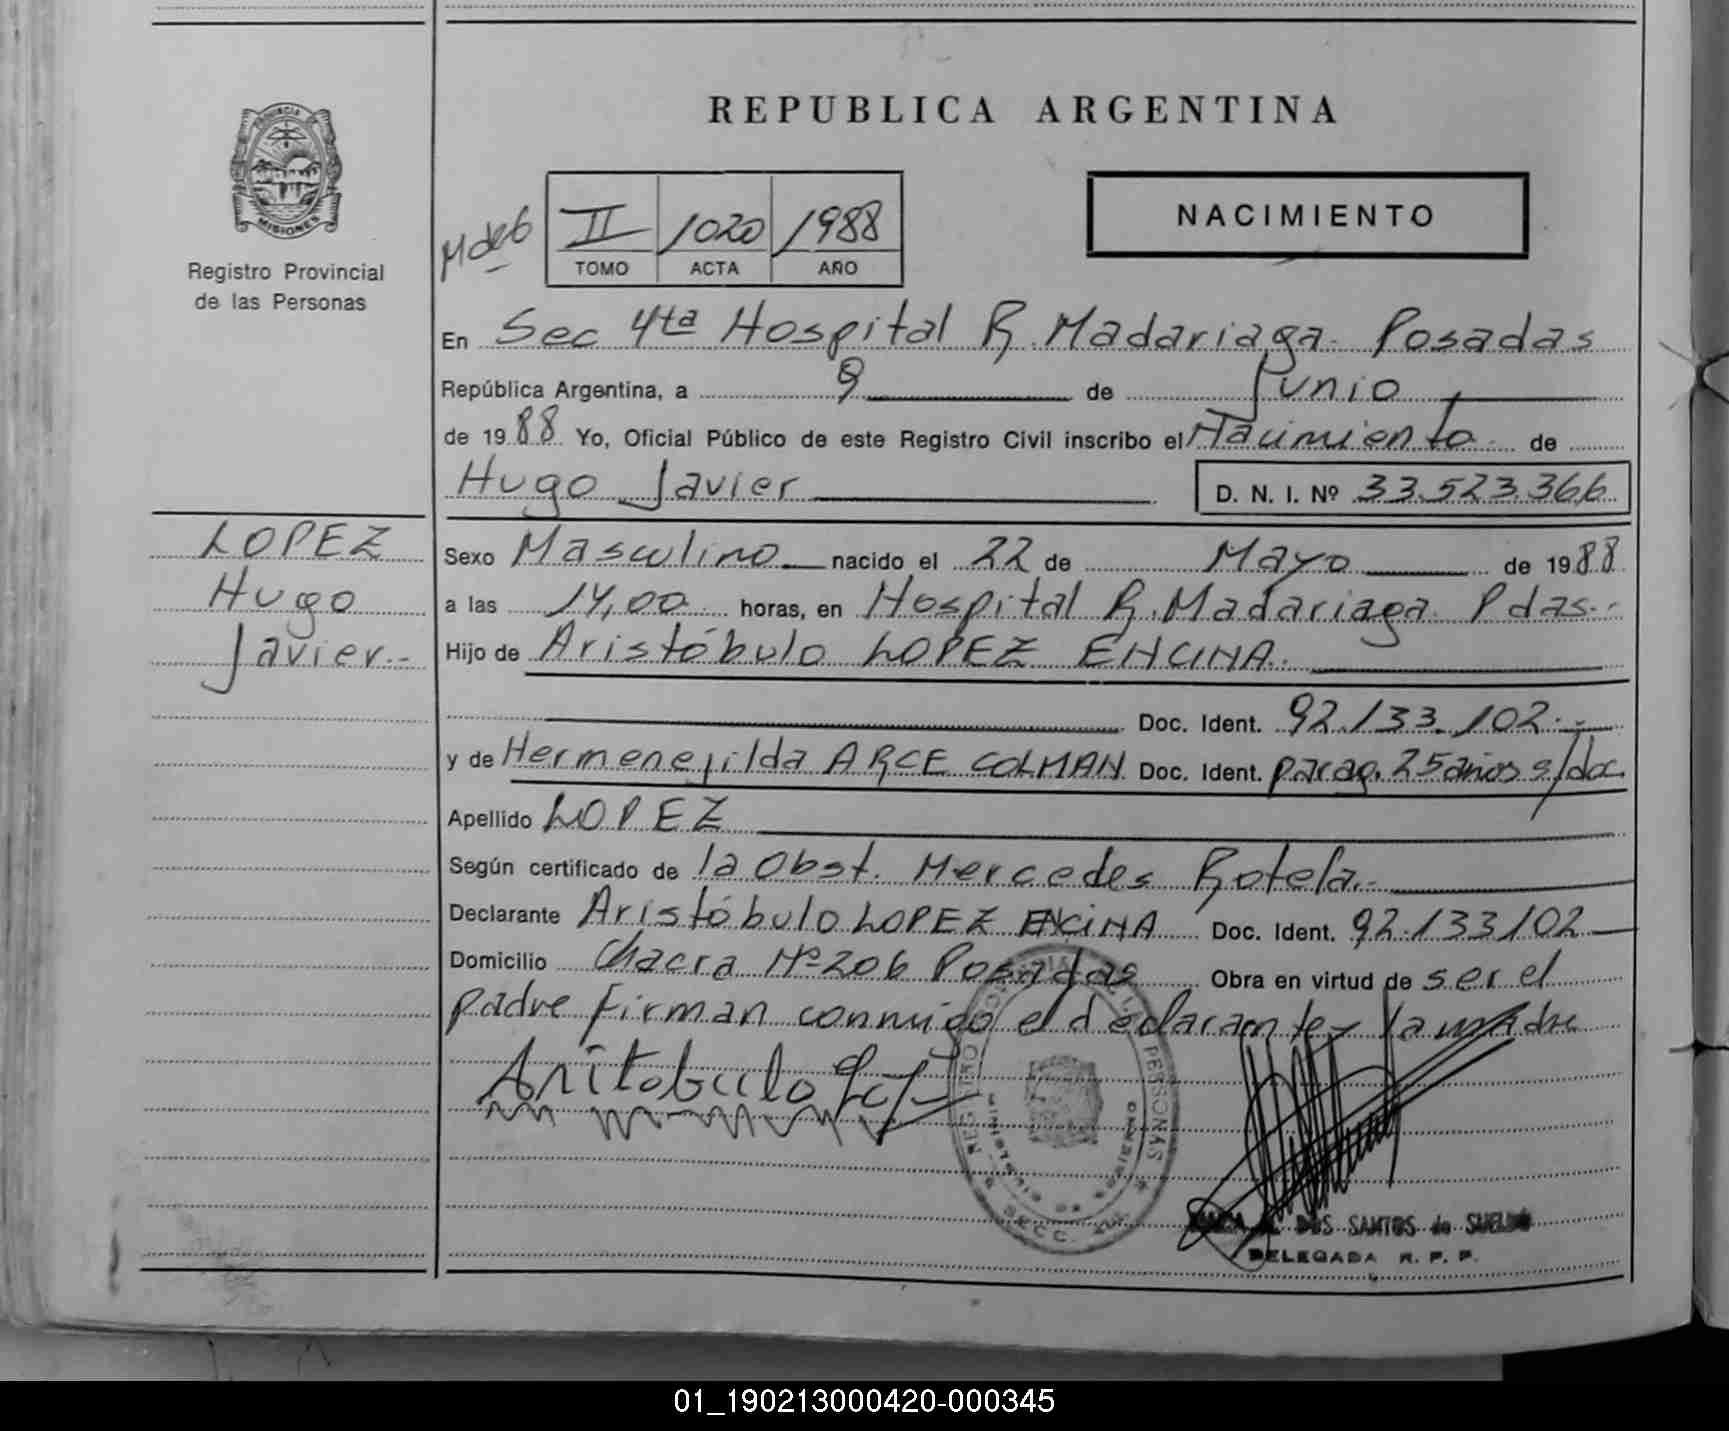 REPUBLICA ARGENTINA
PROVINCIA
MISIONES
Registro Provincial
de las Personas
II 1020 1988
TOMO ACTA AÑO
NACIMIENTO
En Sec 4ta Hospital R. Madariaga Posadas
República Argentina, a 9 de Junio
de 1988 Yo, Oficial Público de este Registro Civil inscribo el Nacimiento de
Hugo Javier D. N. I. Nº 33.523.366
LOPEZ
Hugo
Javier.-
Sexo Masculino nacido el 22 de Mayo de 1988
a las 14,00 horas, en Hospital R. Madariaga Pdas.-
Hijo de Aristóbulo LOPEZ ENCINA.
Doc. Ident. 92.133.102.-
y de Hermenejilda ARCE COLMAN Doc. Ident. parag. 25 años s/doc.
Apellido LOPEZ
Según certificado de la Obst. Mercedes Rotela.-
Declarante Aristóbulo LOPEZ ENCINA Doc. Ident. 92.133102
Domicilio Chacra Nº 206 Posadas Obra en virtud de ser el
padre firman conmigo el declarante y la madre
Aritobulo
REGISTRO PROVINCIAL DE LAS PERSONAS
MINISTERIO DE GOBIERNO
SECC.
DOS SANTOS de SUELDO
DELEGADA R. P. P.
01_190213000420-000345